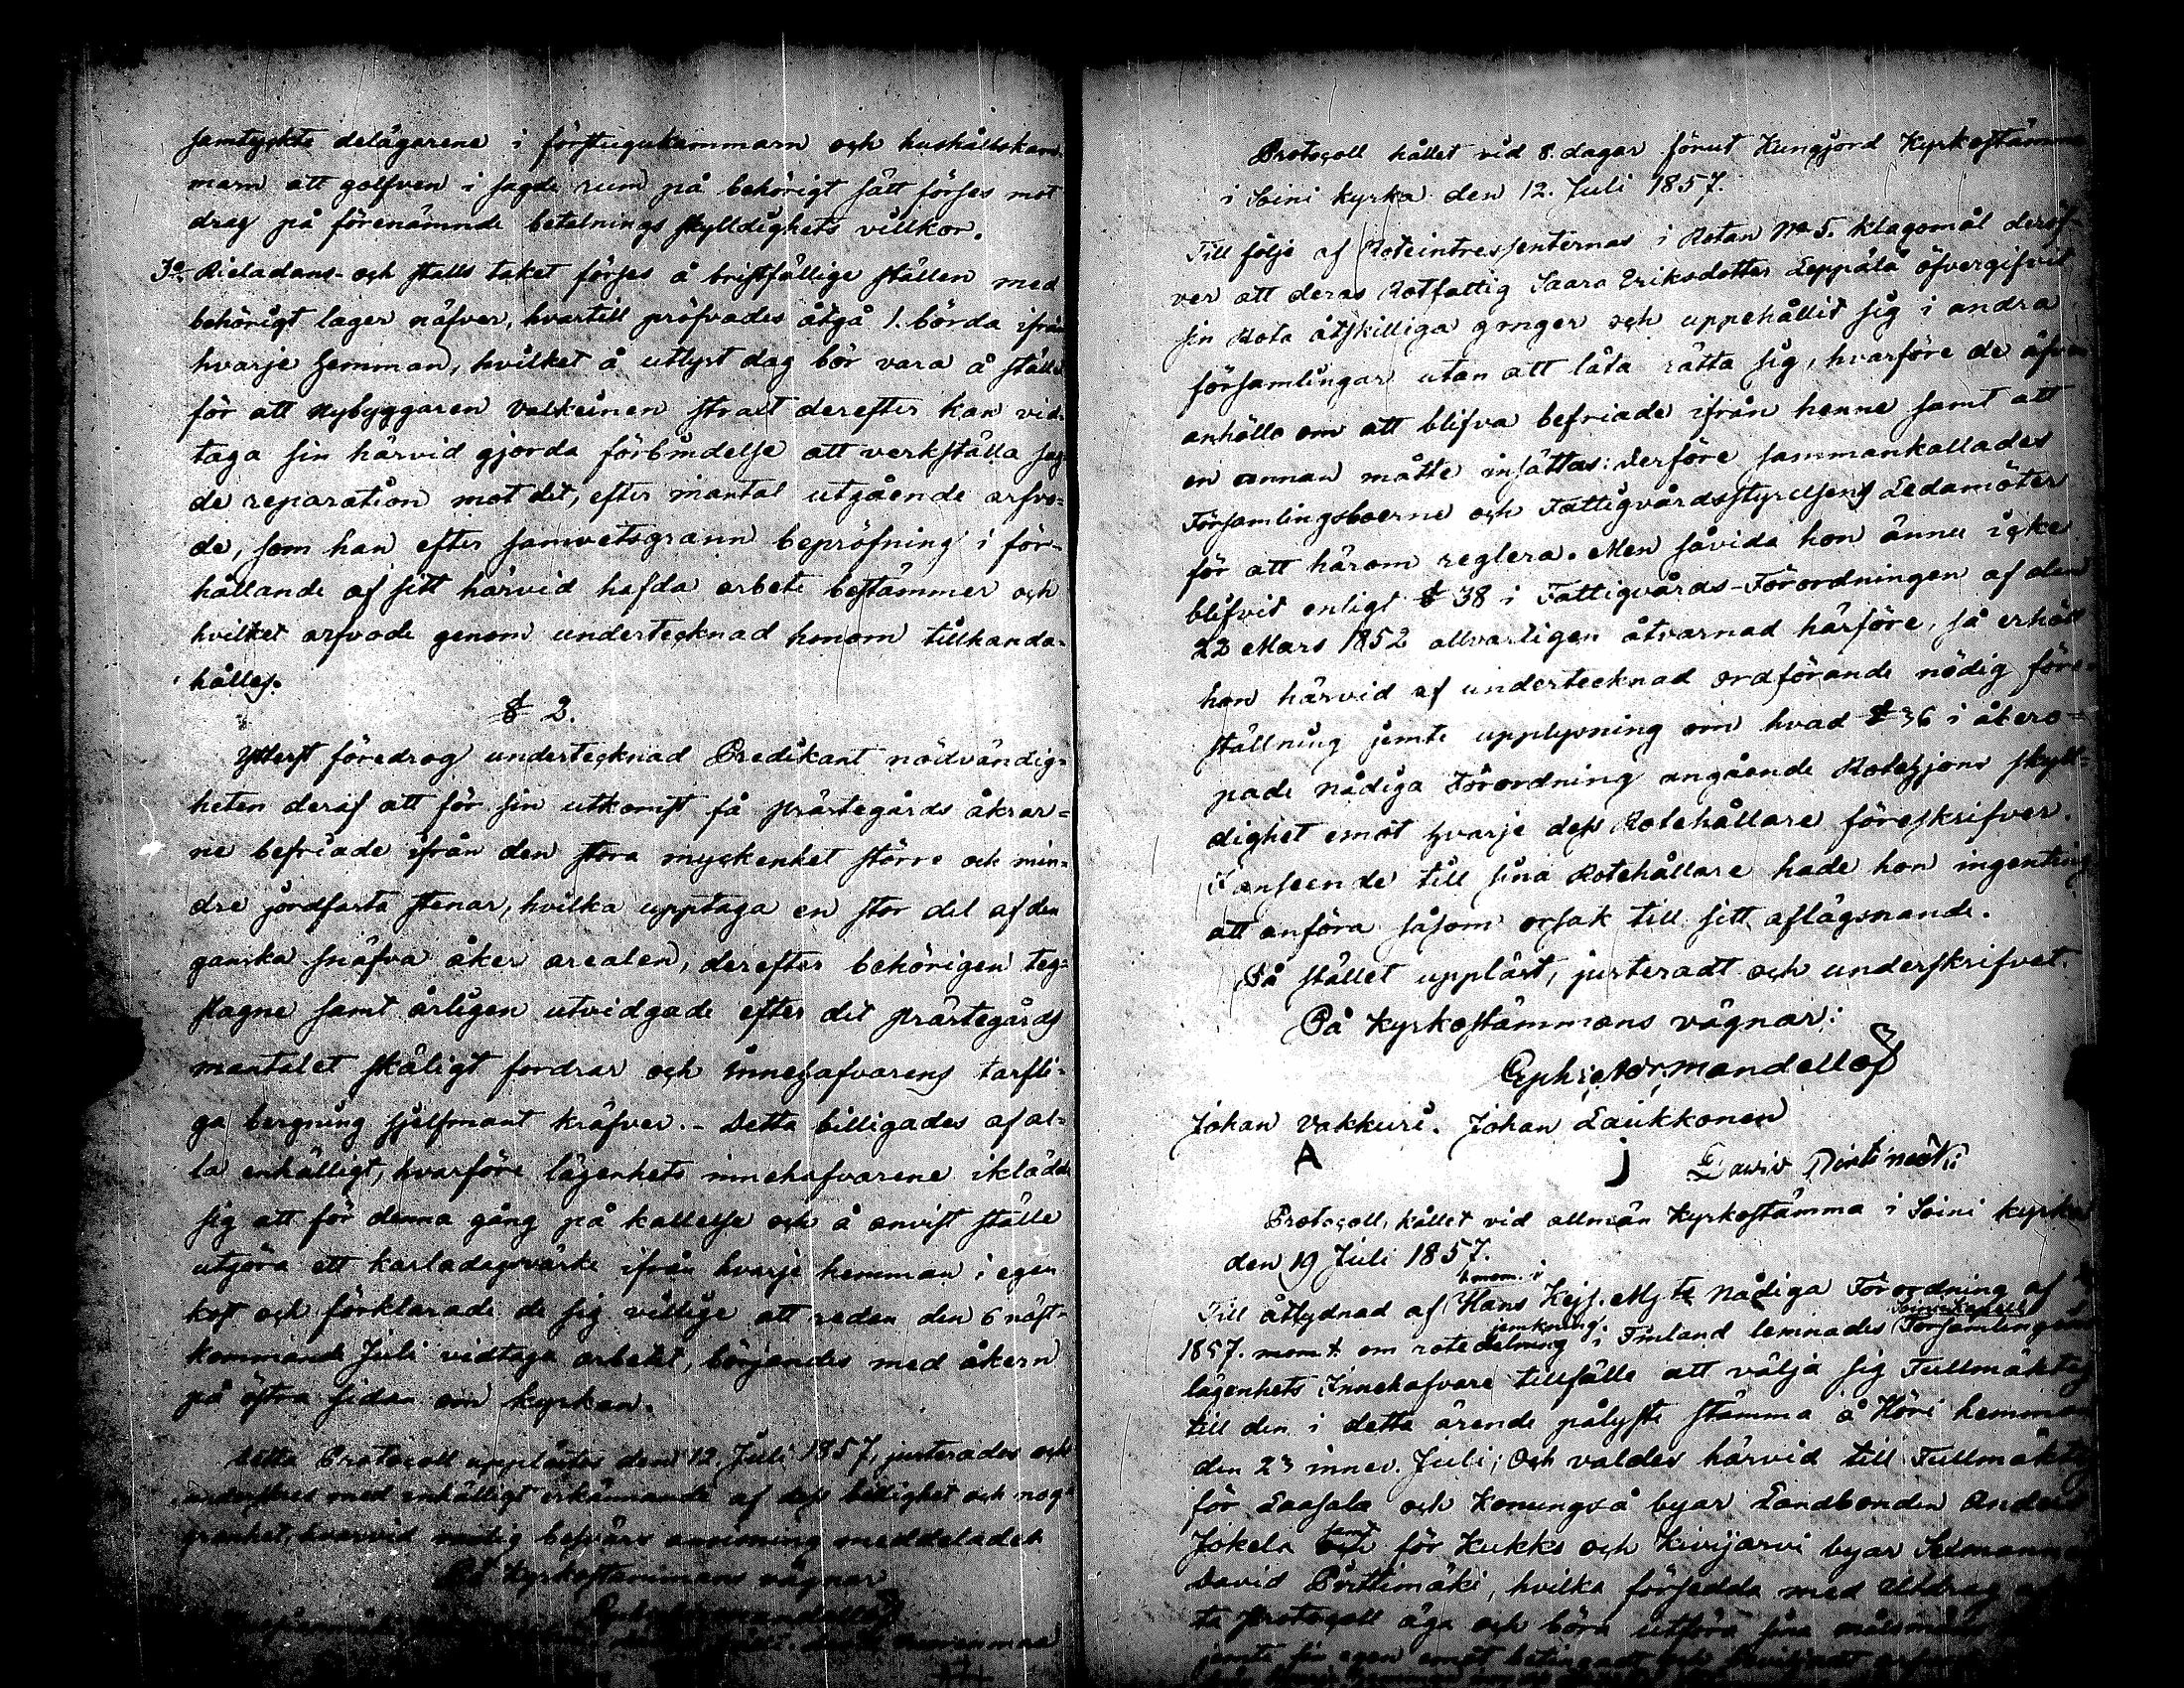 samtyckte delägarene i förstugukammarn och hushållskam-
marn att golfven i sagde rum på behörigt sätt förses mot
drag på förenämnde betalnings skylldighets villkor.
3o Rieladans- och stalls taket förses å bristfällige ställen med
behörigt lager näfver, hvartill pröfvades åtgå 1. börda ifrån
hvarje hemman, hvilket å utlyst dag bör vara å stället
för att Nybyggaren Valkeinen straxt derefter kan vid-
taga sin härvid gjorda förbindelse att verkställa sag-
de reparation mot det, efter mantal utgående arfvo-
de, som han efter samvetsgrann bepröfning i för-
hållande af sitt härvid hafda arbete bestämmer och
hvilket arfvode genom undertecknad honom tillhanda-
hålles.
§ 2.
Ytterst föredrog undertecknad Predikant nödvändig-
heten deraf att för sin utkomst få prästegårds åkrar-
ne befriade ifrån den stora myckenhet större och min-
dre jordfasta stenar, hvilka upptaga en stor del af den
ganska snäfva åker arealen, derefter behörigen teg-
skagne samt årligen utvidgade efter det prästegårds
mantalet skäligt fordrar och innehafvarens tarfli-
ga bergning sjelfmant kräfver. - Detta billigades af al-
la enhälligt, hvarföre lägenhets innehafvarene iklädde
sig att för denna gång på kallelse och å anvist ställe
utgöra ett karladagsvärke ifrån hvarje hemman i egen
kost och förklarade de sig villige att redan den 6 näst-
kommande Juli vidtaga arbetet, börjandes med åkern
på östra sidan om kyrkan.
Detta Protocoll upplästes den 12. Juli 1857, justerades och
underskrefs med enhälligt erkännande af dess billighet och nog-
granhet, hvarvid nödig besvärs anvisning meddelades
På Kyrkostämmans vägnar
Protocoll hållet vid 8. dagar förut Kungjord Kyrkostämma
i Soini kyrka den 12. Juli 1857.
Till följe af Roteintressenternas i Rotan No 5. klagomål deröf-
ver att deras Rotfattig Saara Eriksdotter Leppälä öfvergifvit
sin Rota åtskilliga gånger och uppehållit sig i andra
församlingar utan att låta rätta sig, hvarföre de äfven
anhölle om att blifva befriade ifrån henne samt att
en annan måtte insättas: derföre sammankallades
Församlingsboerne och Fattigvårdsstyrelsens Ledamöter
för att härom reglera. Men såvida hon ännu icke
blifvit enligt § 38 i Fattigvårds-Förordningen af den
22 Mars 1852 allvarligen åtvarnad härföre, så erhöll
hon härvid af undertecknad ordförande nödig före-
ställning jemte upplysning om hvad § 36 i åbero-
pade nådiga Förordning angående Rotehjons skyll-
dighet emot hvarje dess Rotehållare föreskrifver.
I anseende till sina Rotehållare hade hon ingenting
att anföra såsom orsak till sitt aflägsnande.
På stället uppläst, justeradt och underskrifvet.
På Kyrkostämmans vägnar:
Johan Vakkuri. Johan Laukkonen
A J David
Protocoll, hållet vid allmän Kyrkostämma i Soini kyrka
den 19 Juli 1857.
Till åtlydnad af 1 mom. i Hans Kejs. Maj:ts Nådiga Förordning af
1857. mom 1. om rote jemkning i Finland lemnades Församlingens
lägenhets Innehafvare tillfälle att välja sig Fullmäktig
till den i detta ärende pålyste stämma å Höri hemman
den 23 innev. Juli; Och valdes härvid till Fullmäktig
för Laasala och Konungså byar Landbonden Anders
Jokela samt för Kukko och Kivijärvi byar
David Pirttimäki, hvilka försedda med Utdrag
Protocoll äga och böra utföra sina